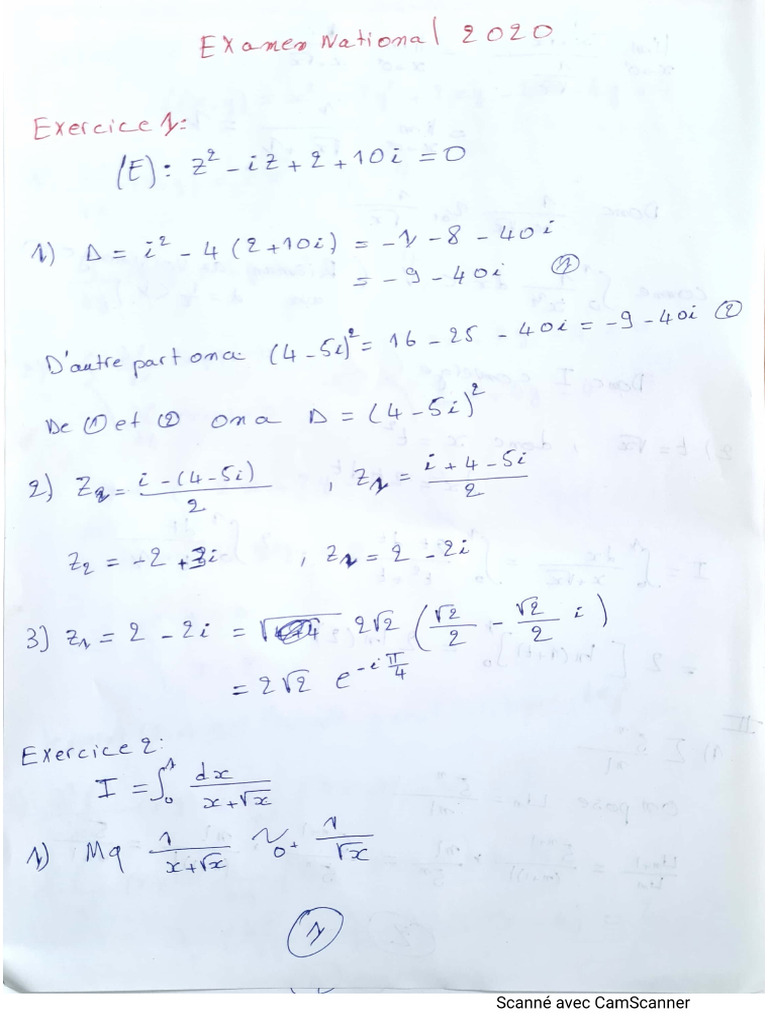 Examen National 2020
Exercice 1:
(E): z² - iz + 2 + 10i = 0
1) Δ = i² - 4(2+10i) = -1 - 8 - 40i
= -9 - 40i ①
D'autre part on a: (4-5i)² = 16 - 25 - 40i = -9 - 40i ②
De ① et ② on a Δ = (4-5i)²
2) z₂ = (i - (4-5i))/2 , z₁ = (i + 4 - 5i)/2
z₂ = -2 + 3i , z₁ = 2 - 2i
3) z₁ = 2 - 2i = 2√2 (√2/2 - √2/2 i)
= 2√2 e^(-iπ/4)
Exercice 2:
I = ∫₀¹ dx/(x+√x)
1) Mq 1/(x+√x) ~₀₊ 1/√x
①
Scanné avec CamScanner